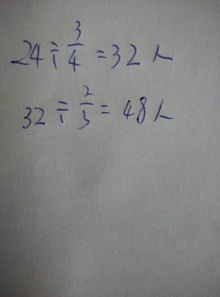 24÷3/4=32人
32÷2/3=48人